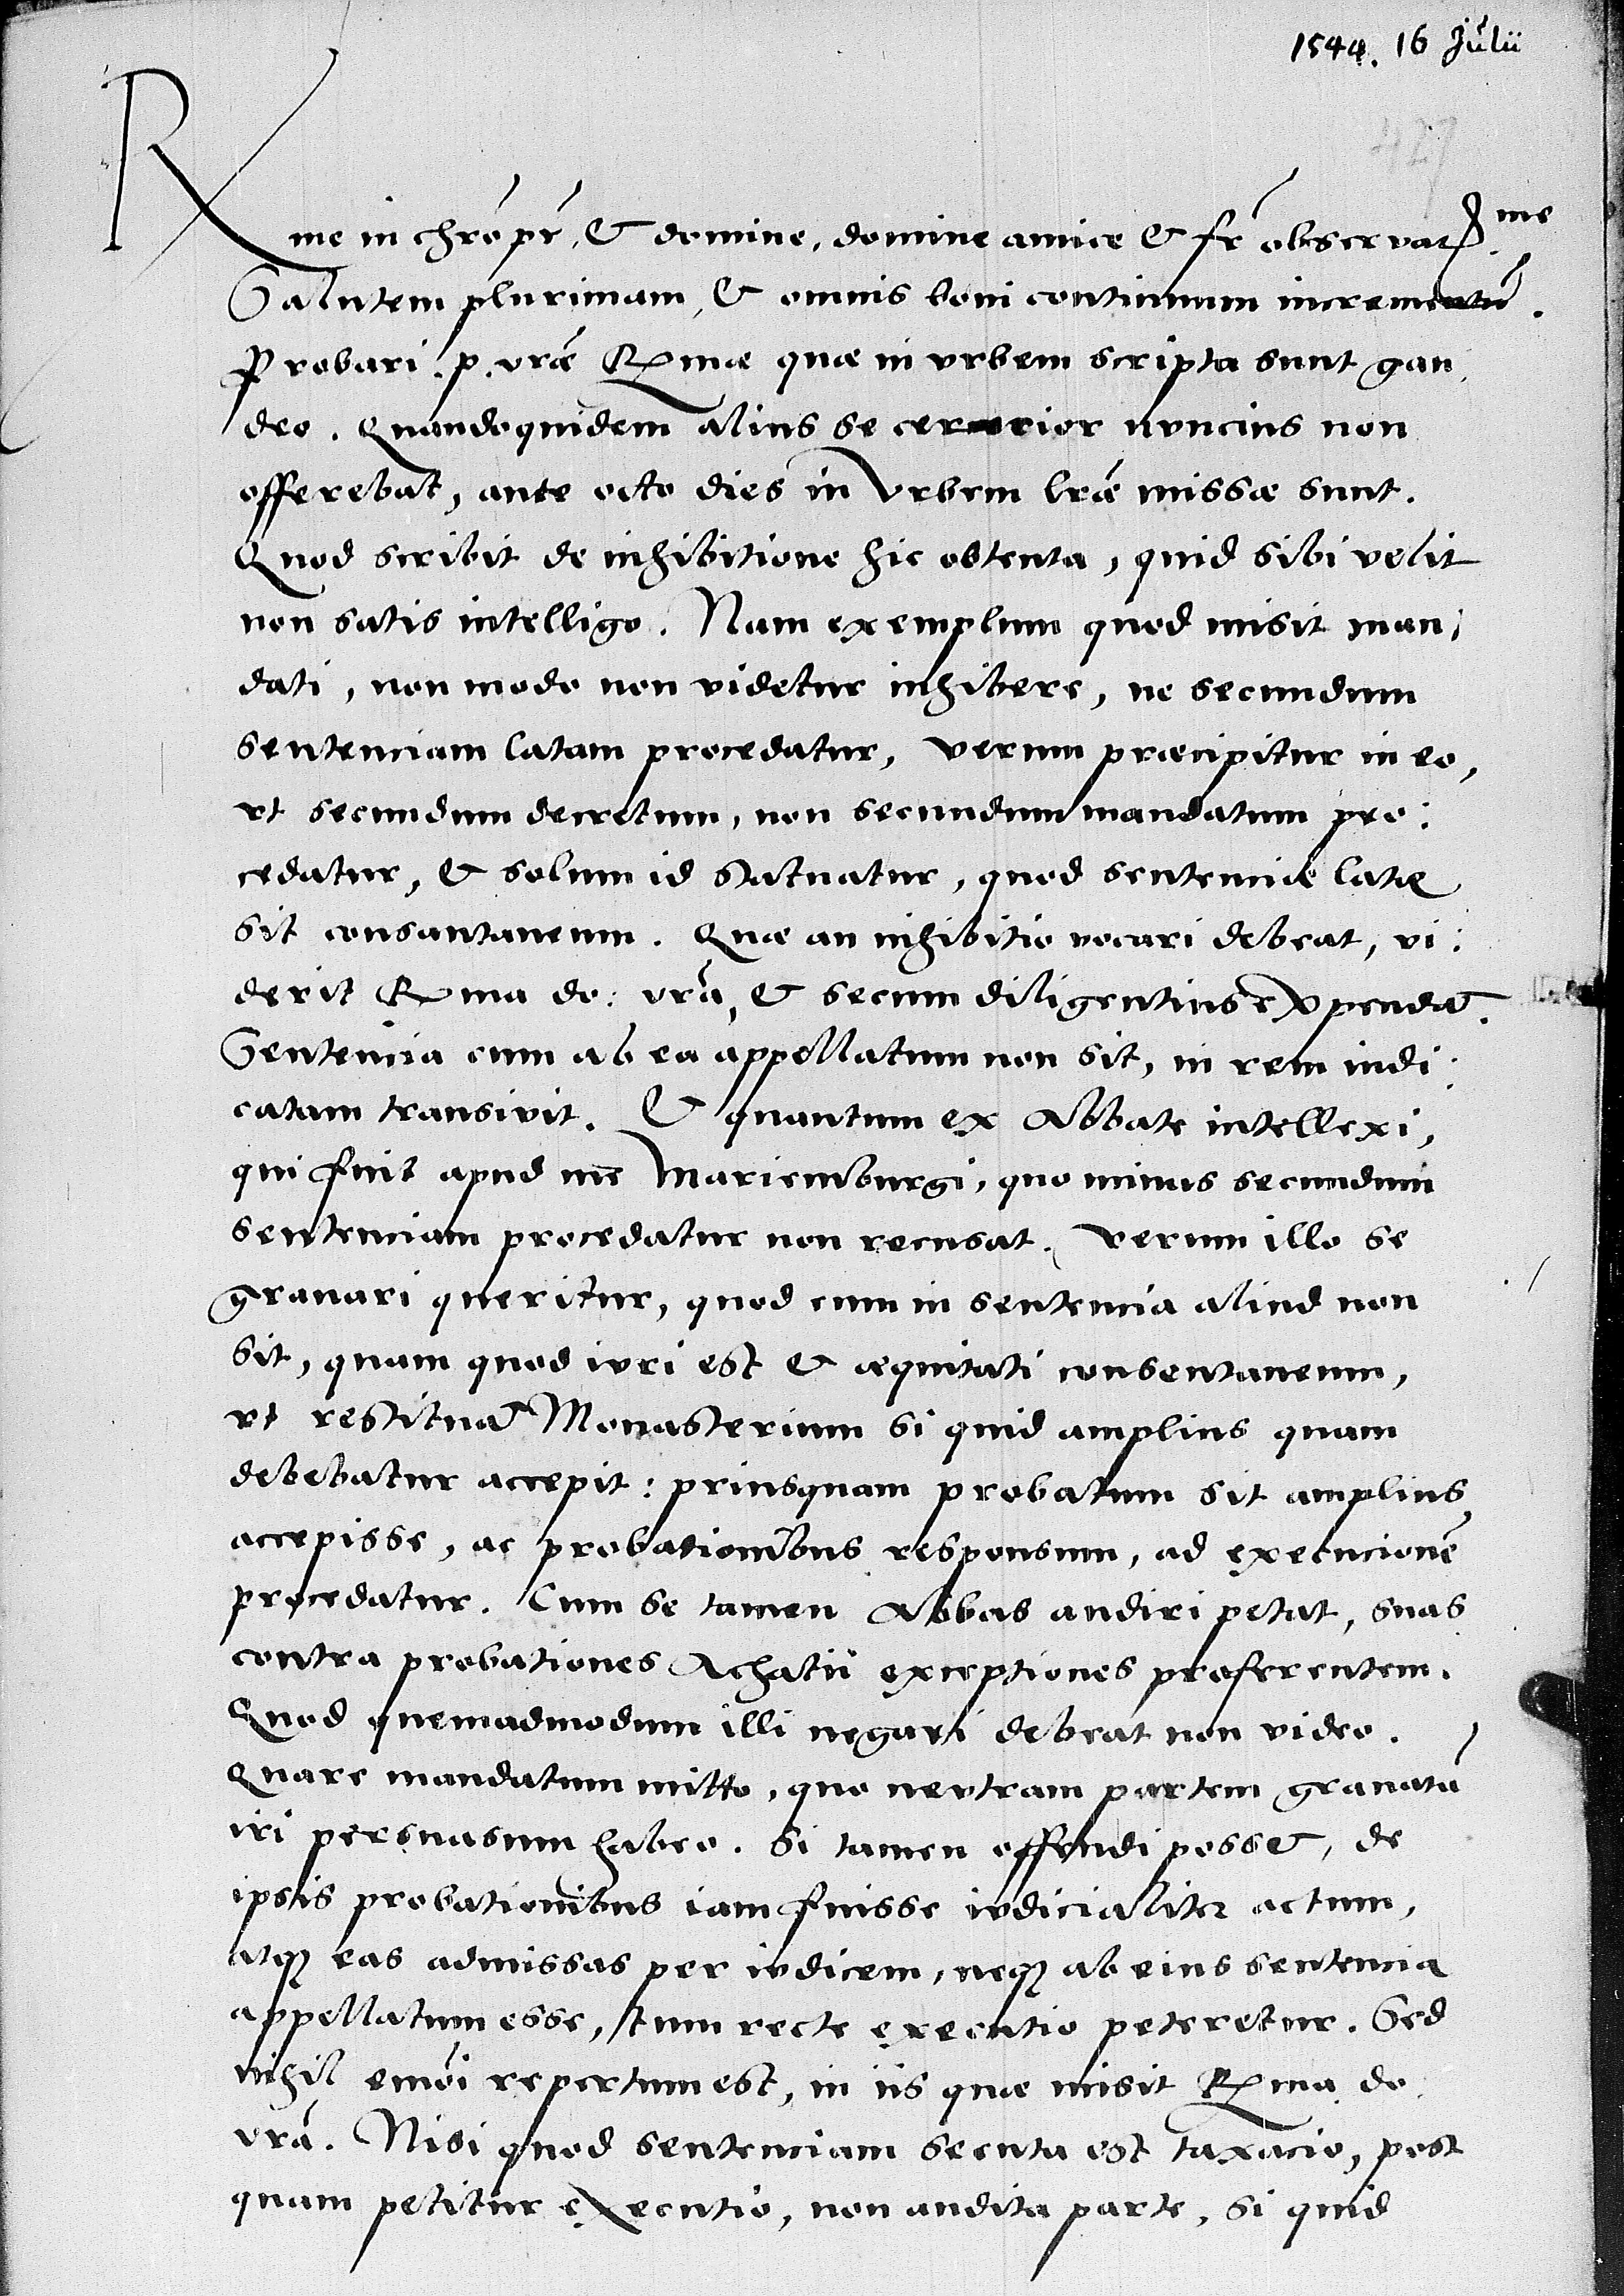 1544. 16 Julii
427
Rme in chro pr, & domine, domine amice & fr observatme
Salutem plurimam, & omnis boni continuum incrementu.
Probari. p. vra Rmae quae in vrbem scripta sunt gau,
deo. Quandoquidem alius se certior nuncius non
offerebat, ante octo dies in Vrbem lrae missae sunt.
Quod scribit de inhibitione hic obtenta, quid sibi velit
non satis intelligo. Nam exemplum quod misit man,
dati, non modo non videtur inhibere, ne secundum
sentenciam latam procedatur, verum praecipitur in eo,
vt secundum decretum, non secundum mandatum pro:
cedatur, & solum id statuatur, quod sentencie late
sit consantaneum. Quae an inhibitio vocari debeat, vi:
derit Rma do: vra, & secum diligentius expendat.
Sentencia cum ab ea appellatum non sit, in rem iudi:
catam transivit. Et quantum ex Abbate intellexi,
qui fuit apud me Mariemburgi, quo minus secundum
sentenciam procedatur non recusat. Verum illo se
gravari queritur, quod cum in sentencia aliud non
sit, quam quod iuri est & aequitati consentaneum,
vt restituat Monasterium si quid amplius quam
debebatur accepit: priusquam probatum sit amplius
accepisse, ac probationibus responsum, ad execucione
procedatur. Cum se tamen Abbas audiri petat, suas
contra probationes Achatii exceptiones proferentem.
Quod quemadmodum illi negari debeat non video.
Quare mandatum mitto, quo neutram partem gravatu
iri persuasum habeo. Si tamen offendi posset, de
ipsis probationibus iam fuisse iudicialiter actum,
atq eas admissas per iudicem, neq ab eius sentencia
appellatum esse, tum recte executio peteretur. Sed
nihil emoi repertum est, in iis quae misit Rma do
vra. Nisi quod sentenciam secuta est taxacio, post
quam petitur executio, non audita parte, si quid